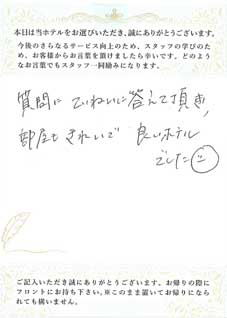 本日は当ホテルをお選びいただき、誠にありがとうございます。
今後のさらなるサービス向上のため、スタッフの学びのた
め、お客様からお言葉を頂けましたら幸いです。どのよう
なお言葉でもスタッフ一同励みになります。
質問に ていねいに 答えて頂き,
部屋も きれいで 良いホテル
でした
ご記入いただき誠にありがとうございます。お帰りの際に
フロントにお持ち下さい。※このまま置いてお帰りになら
れても構いません。